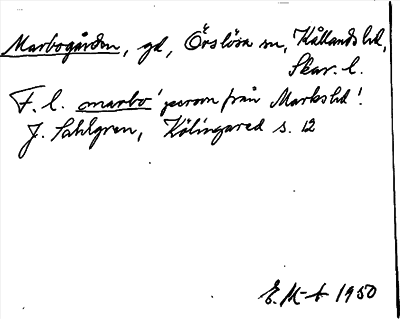 Marbogården, gd, Örslösa sn, Kållands hd,
Skar. l.
F. l. marbo 'person från Marks hd'.
J. Sahlgren, Kölingared s. 12
E. M-t 1950